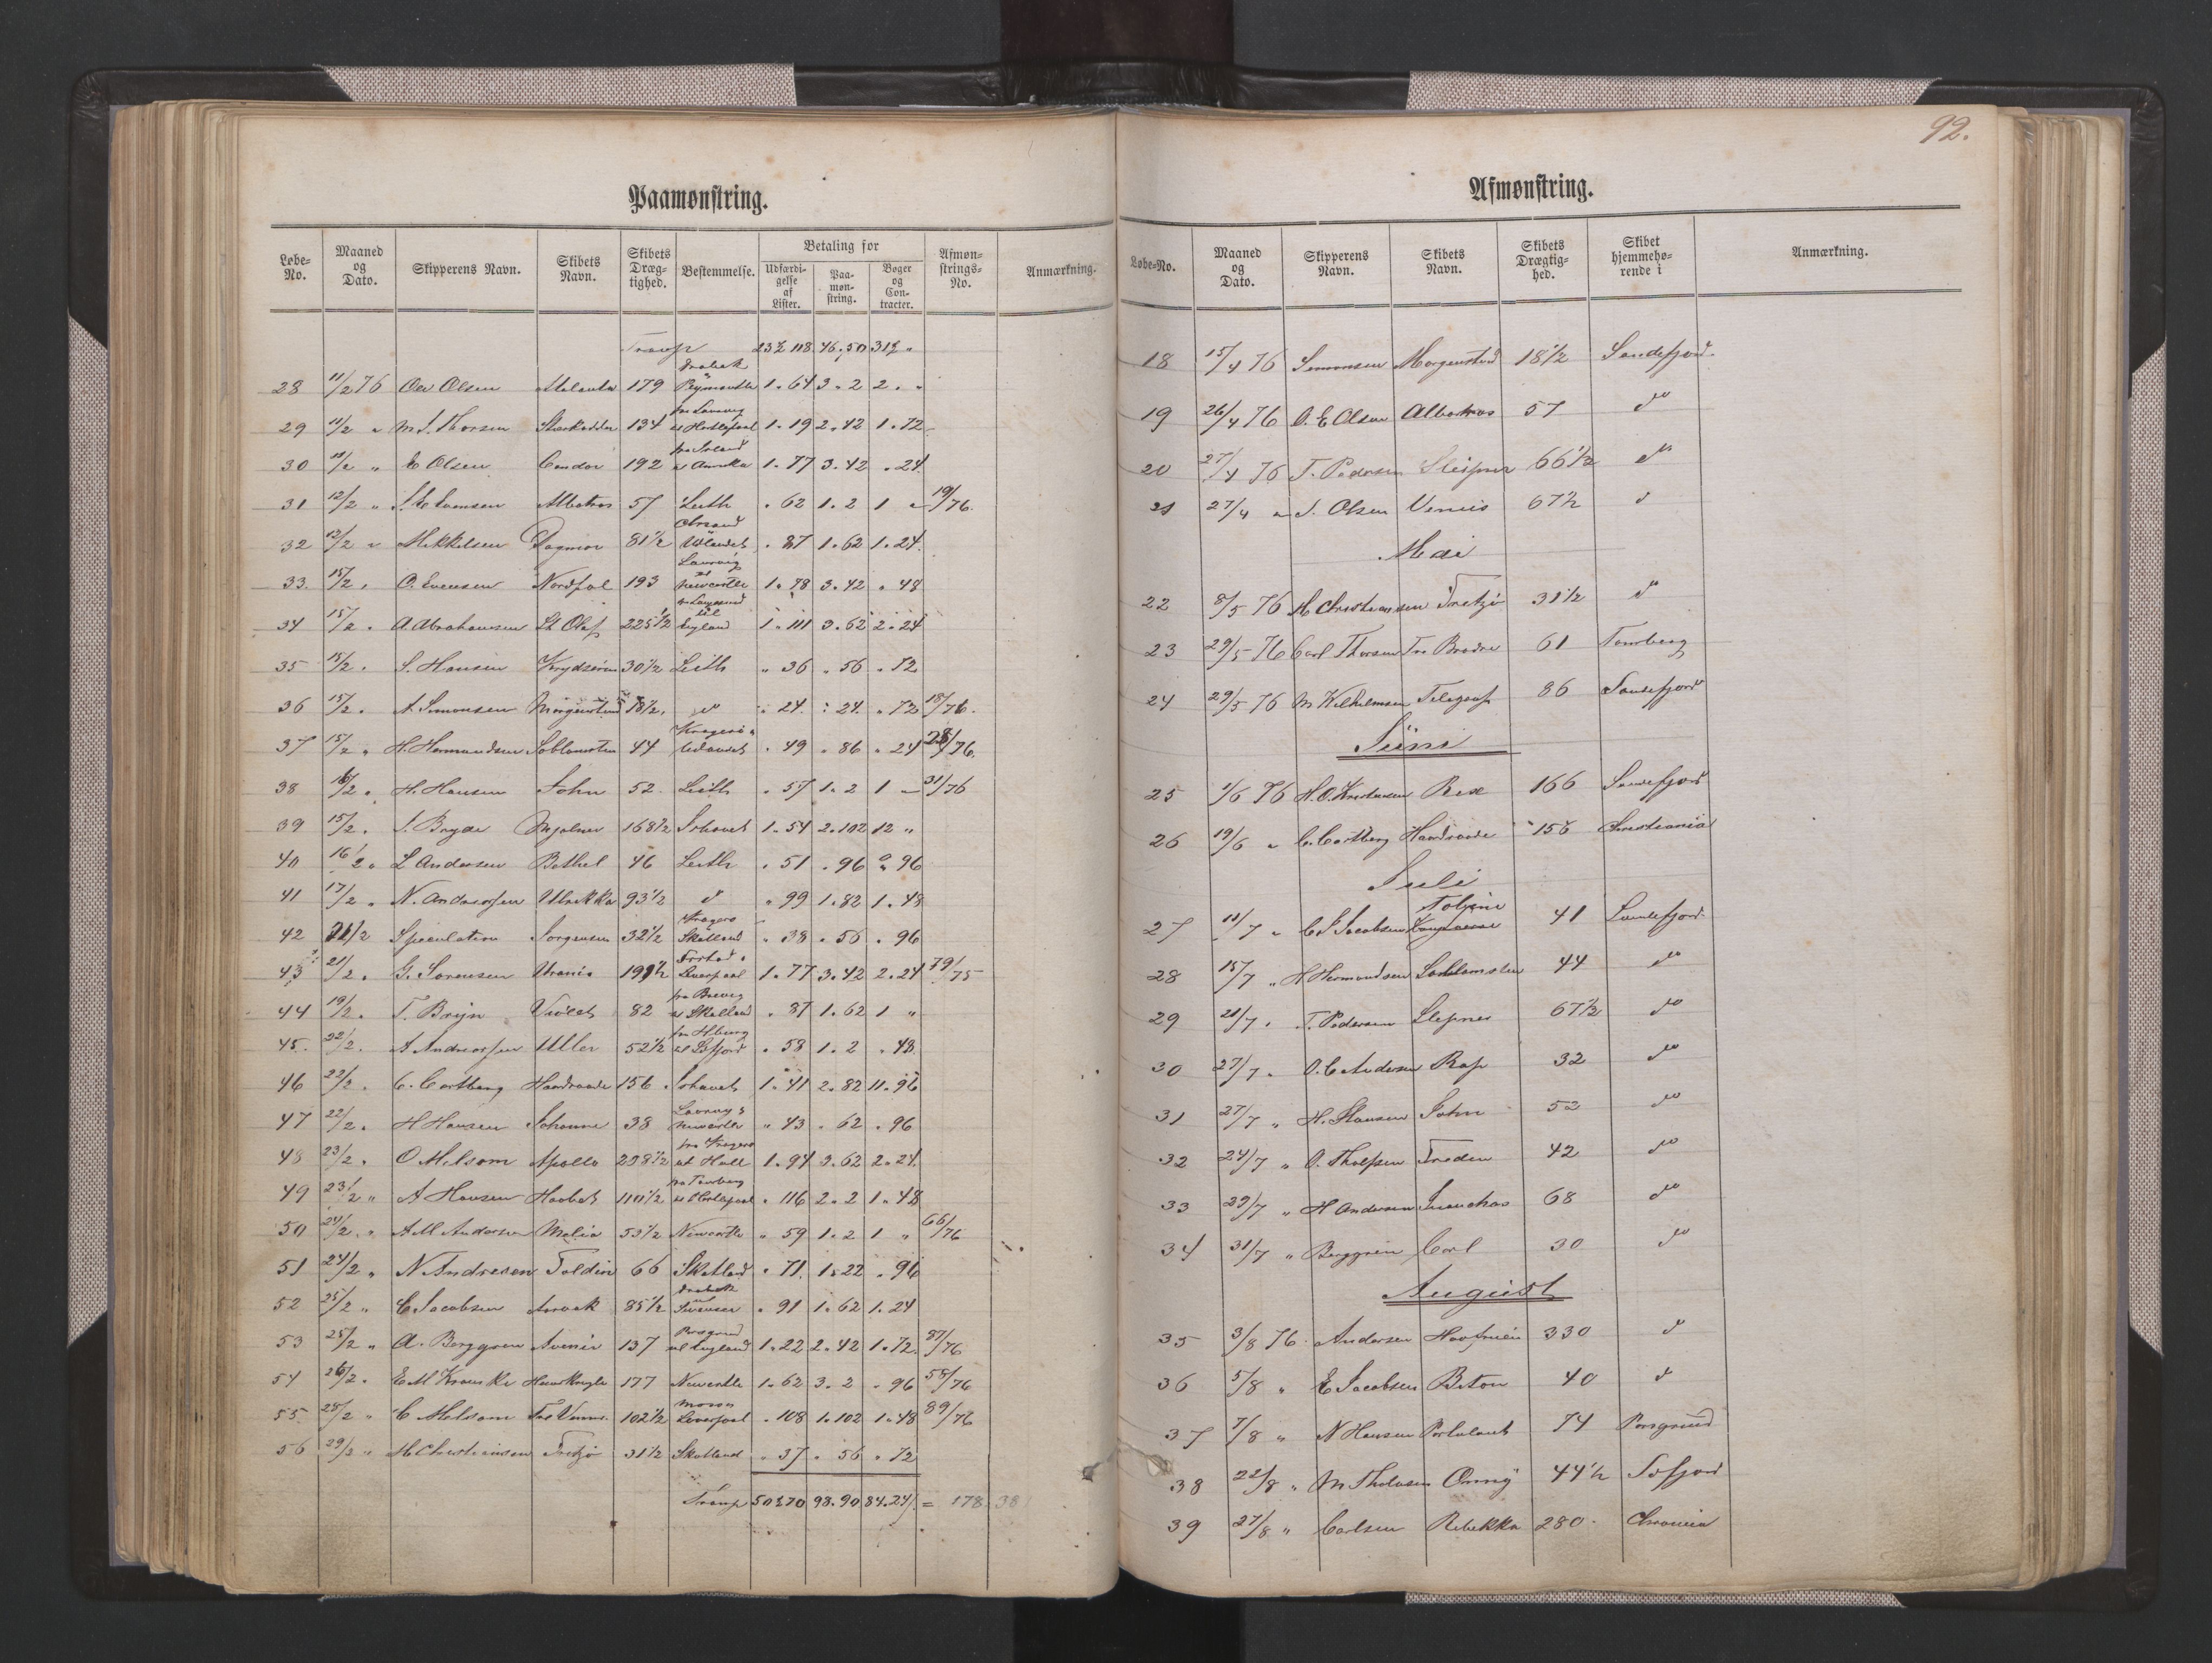 92.
Paamønstring.
Løbe-No. Maaned og Dato. Skipperens Navn. Skibets Navn. Skibets Dræg-tighed. Bestemmelse. Betaling for Udfærdi-gelse af Lister. Paa-møn-string. Bøger og Con-tracter. Afmøn-strings-No. Anmærkning.
Transp 46.50
28 11/2 76 Ole Olsen 179 Drøbak Plymouth 1. 64 3. 2 2. "
29 11/2 " M. S. Thorsen Stærkodder 134 fra Laurvig til Hartlepool 1. 19 2. 42 1. 72
30 11/2 " E Olsen Condor 192 1. 77 3. 42 " 24
31 12/2 " Albatros 57 Leith " 62 1. 2 1 " 19/76.
32 12/2 " Mikkelsen Dagmar 81 1/2 Udlandet " 87 1. 62 1. 24
33. 15/2 " O. Evensen Nordpol 193 Laurvig til Newcastle 1. 78 3. 42 " 48
34 15/2 " A. Abrahamsen St Olaf 225 1/2 fra Langesund til England 1. 111 3. 62 2. 24
35 15/2 " S. Hansen 30 1/2 Leith " 36 " 56 " 72
36 15/2 " A. Simonsen Morgenstund 18 1/2 do " 24 " 24 " 72 18/76.
37 15/2 " H. Hermandsen Søblomsten 44 Kragerø Udlandet " 49 " 86 " 24 28/76.
38 16/2 " H. Hansen John 52 Leith " 57 1. 2 1 " 31/76
39 15/2 " S. Bryde Mjølner 168 1/2 Ishavet 1. 54 2. 102 12 "
40 16/2 " L Andersen Bethel 46 Leith " 51 " 96 " 96
41 17/2 " N. Andersen Ulrikka 93 1/2 do " 99 1. 82 1. 48
42 21/2 Speculation Jørgensen 32 1/2 Kragerø Skotland " 38 " 56 " 96
43 21/2 " G. Sørensen Urania 191 1/2 Liverpool 1. 77 3. 42 2. 24 79/75
44 19/2 " T. Bryn Violet 82 fra Brevig til Skotland " 87 1. 62 1 "
45. 22/2 A Andersen Uller 52 1/2 " 58 1. 2 " 48
46 22/2 " C. Cortberg Haardraade 156 Ishavet 1. 41 2. 82 11. 96
47 22/2 " H Hansen Johanne 38 Laurvig Newcastle " 43 " 62 " 96
48 23/2 " O Melsom Apollo 208 1/2 fra Kragerø til Hull 1. 94 3. 62 2. 24
49 23/2 " A Hansen Haabet 110 1/2 fra Tønsberg til Hartlepool " 116 2. 2 1. 48
50 24/2 " A M Andersen Malia 53 1/2 Newcastle " 59 1. 2 1 " 66/76
51 24/2 " N Andresen 66 Skotland " 71 1. 22 " 96
52 25/2 " C Jacobsen Norvak 85 1/2 Drøbak til Swansea " 91 1. 62 1. 24
53 25/2 " A. Berggren Avenir 137 Porsgrund til England 1. 22 2. 42 1. 72 87/76
54 26/2 " 177 Newcastle 1. 62 3. 2 " 96 58/76
55 28/2 " C Melsom 102 1/2 Moss Liverpool " 108 1. 102 1. 48 89/76
56 29/2 " M Christiansen Fritzø 31 1/2 Skotland " 37 " 56 " 72
Transp 98.90 84.24 = 178 38
Afmønstring.
Løbe-No. Maaned og Dato. Skipperens Navn. Skibets Navn. Skibets Drægtig-hed. Skibet hjemmehø-rende i Anmærkning.
18 15/4 76 Simonsen Morgenstund 18 1/2 Sandefjord
19 26/4 76 O. E Olsen Albatros 57 do
20 27/4 76 T. Pedersen Sleipner 66 1/2 do
21 27/4 " J. Olsen Venus 67 1/2 do
Mai
22 8/5 76 M Christiansen Fritzø 31 1/2 do
23 29/5 76 Carl Thorsen Tre Brødre 61 Tønsberg
24 29/5 76 M Vilhelmsen Telegraf 86 Sandefjord
Juni
25 1/6 76 H. O. Kristensen Rex 166 Sandefjord
26 19/6 " C. Cortberg Haardraade 156 Christiania
Juli
27 11/7 " C S Jacobsen 41 Sandefjord
28 15/7 " H Hermandsen Søblomsten 44 do
29 21/7 " T. Pedersen Slepner 67 1/2 do
30 27/7 " O. C Andersen Rap 32 do
31 27/7 " H. Hansen John 52 do
32 24/7 " O. Tholfsen Freden 42 do
33 29/7 " H Andersen 68 do
34 31/7 " Berggren Carl 30 do
August
35 3/8 76. Andersen Havfruen 330 do
36 5/8 " E Jacobsen Beton 40 do
37 7/8 " N Hansen 74 Porsgrund
38 22/8 " Onny 44 1/2
39 27/8 " Carlsen Rebekka 280